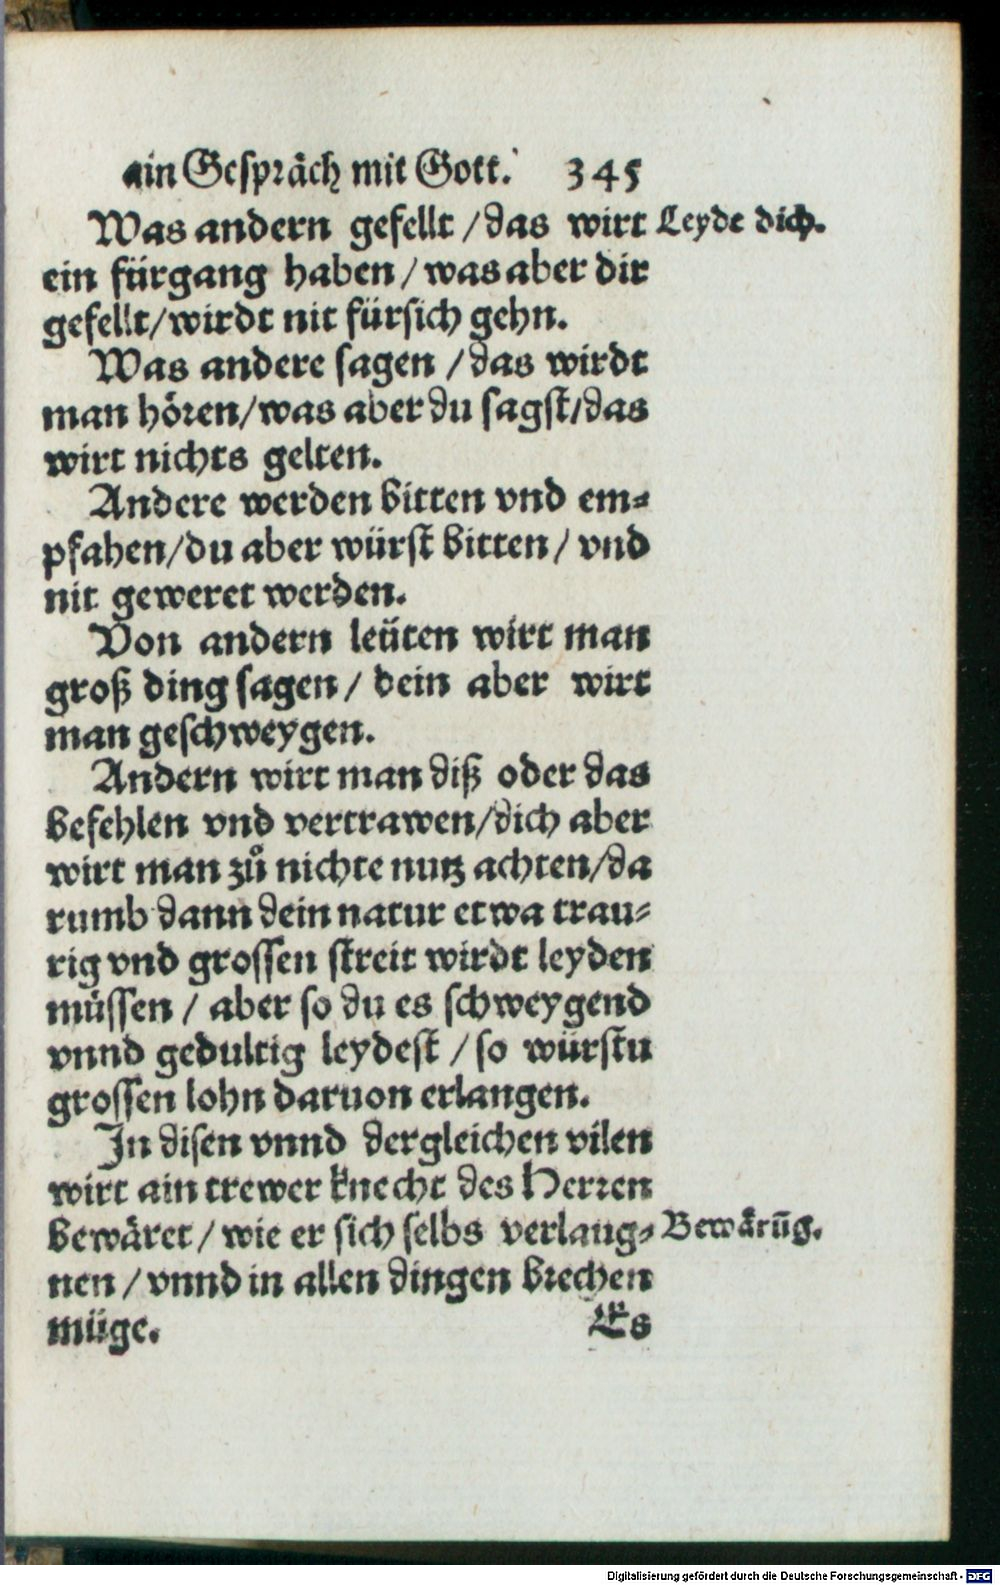 ain Gespräch mit Gott. 345
Was andern gefellt / das wirt
Leyde dich.
ein fürgang haben / was aber dir
gefellt / wirdt nit fürsich gehn.
Was andere sagen / das wirdt
man hören / was aber du sagst / das
wirt nichts gelten.
Andere werden bitten vnd em⸗
pfahen / du aber würst bitten / vnd
nit geweret werden.
Von andern leüten wirt man
groß ding sagen / dein aber wirt
man geschweygen.
Andern wirt man diß oder das
befehlen vnd vertrawen / dich aber
wirt man zů nichte nutz achten / da
rumb dann dein natur etwa trau⸗
rig vnd grossen streit wirdt leyden
müssen / aber so du es schweygend
vnnd gedultig leydest / so würstu
grossen lohn daruon erlangen.
In disen vnnd dergleichen vilen
wirt ain trewer knecht des Herren
bewäret / wie er sich selbs verlaug⸗
Bewärūg.
nen / vnnd in allen dingen brechen
müge.
Es
Digitalisierung gefördert durch die Deutsche Forschungsgemeinschaft - DFG